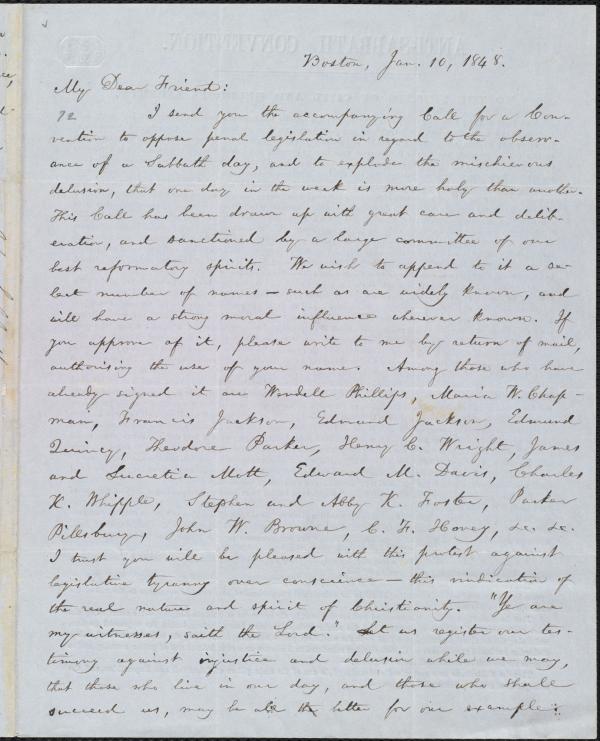 Boston, Jan. 10, 1848.
My Dear Friend:
72 I send you the accompanying Call for a Con-
vention to oppose penal legislation in regard to the observ-
ance of a Sabbath day, and to explode the mischievous
delusion, that one day in the week is more holy than another.
This Call has been drawn up with great care and delib-
eration, and sanctioned by a large committee of our
best reformatory spirits. We wish to append to it a se-
lect number of names — such as are widely known, and
will have a strong moral influence wherever known. If
you approve of it, please write to me by return of mail,
authorising the use of your name. Among those who have
already signed it are Wendell Phillips, Maria W. Chap-
man, Francis Jackson, Edmund Jackson, Edmund
Quincy, Theodore Parker, Henry C. Wright, James
and Lucretia Mott, Edward M. Davis, Charles
K. Whipple, Stephen and Abby K. Foster, Parker
Pillsbury, John W. Browne, C. F. Hovey, &c. &c.
I trust you will be pleased with this protest against
legislative tyranny over conscience — this vindication of
the real nature and spirit of Christianity. "Ye are
my witnesses, saith the Lord." Let us register our tes-
timony against injustice and delusion while we may,
that those who live in our day, and those who shall
succeed us, may be all the better for our example.